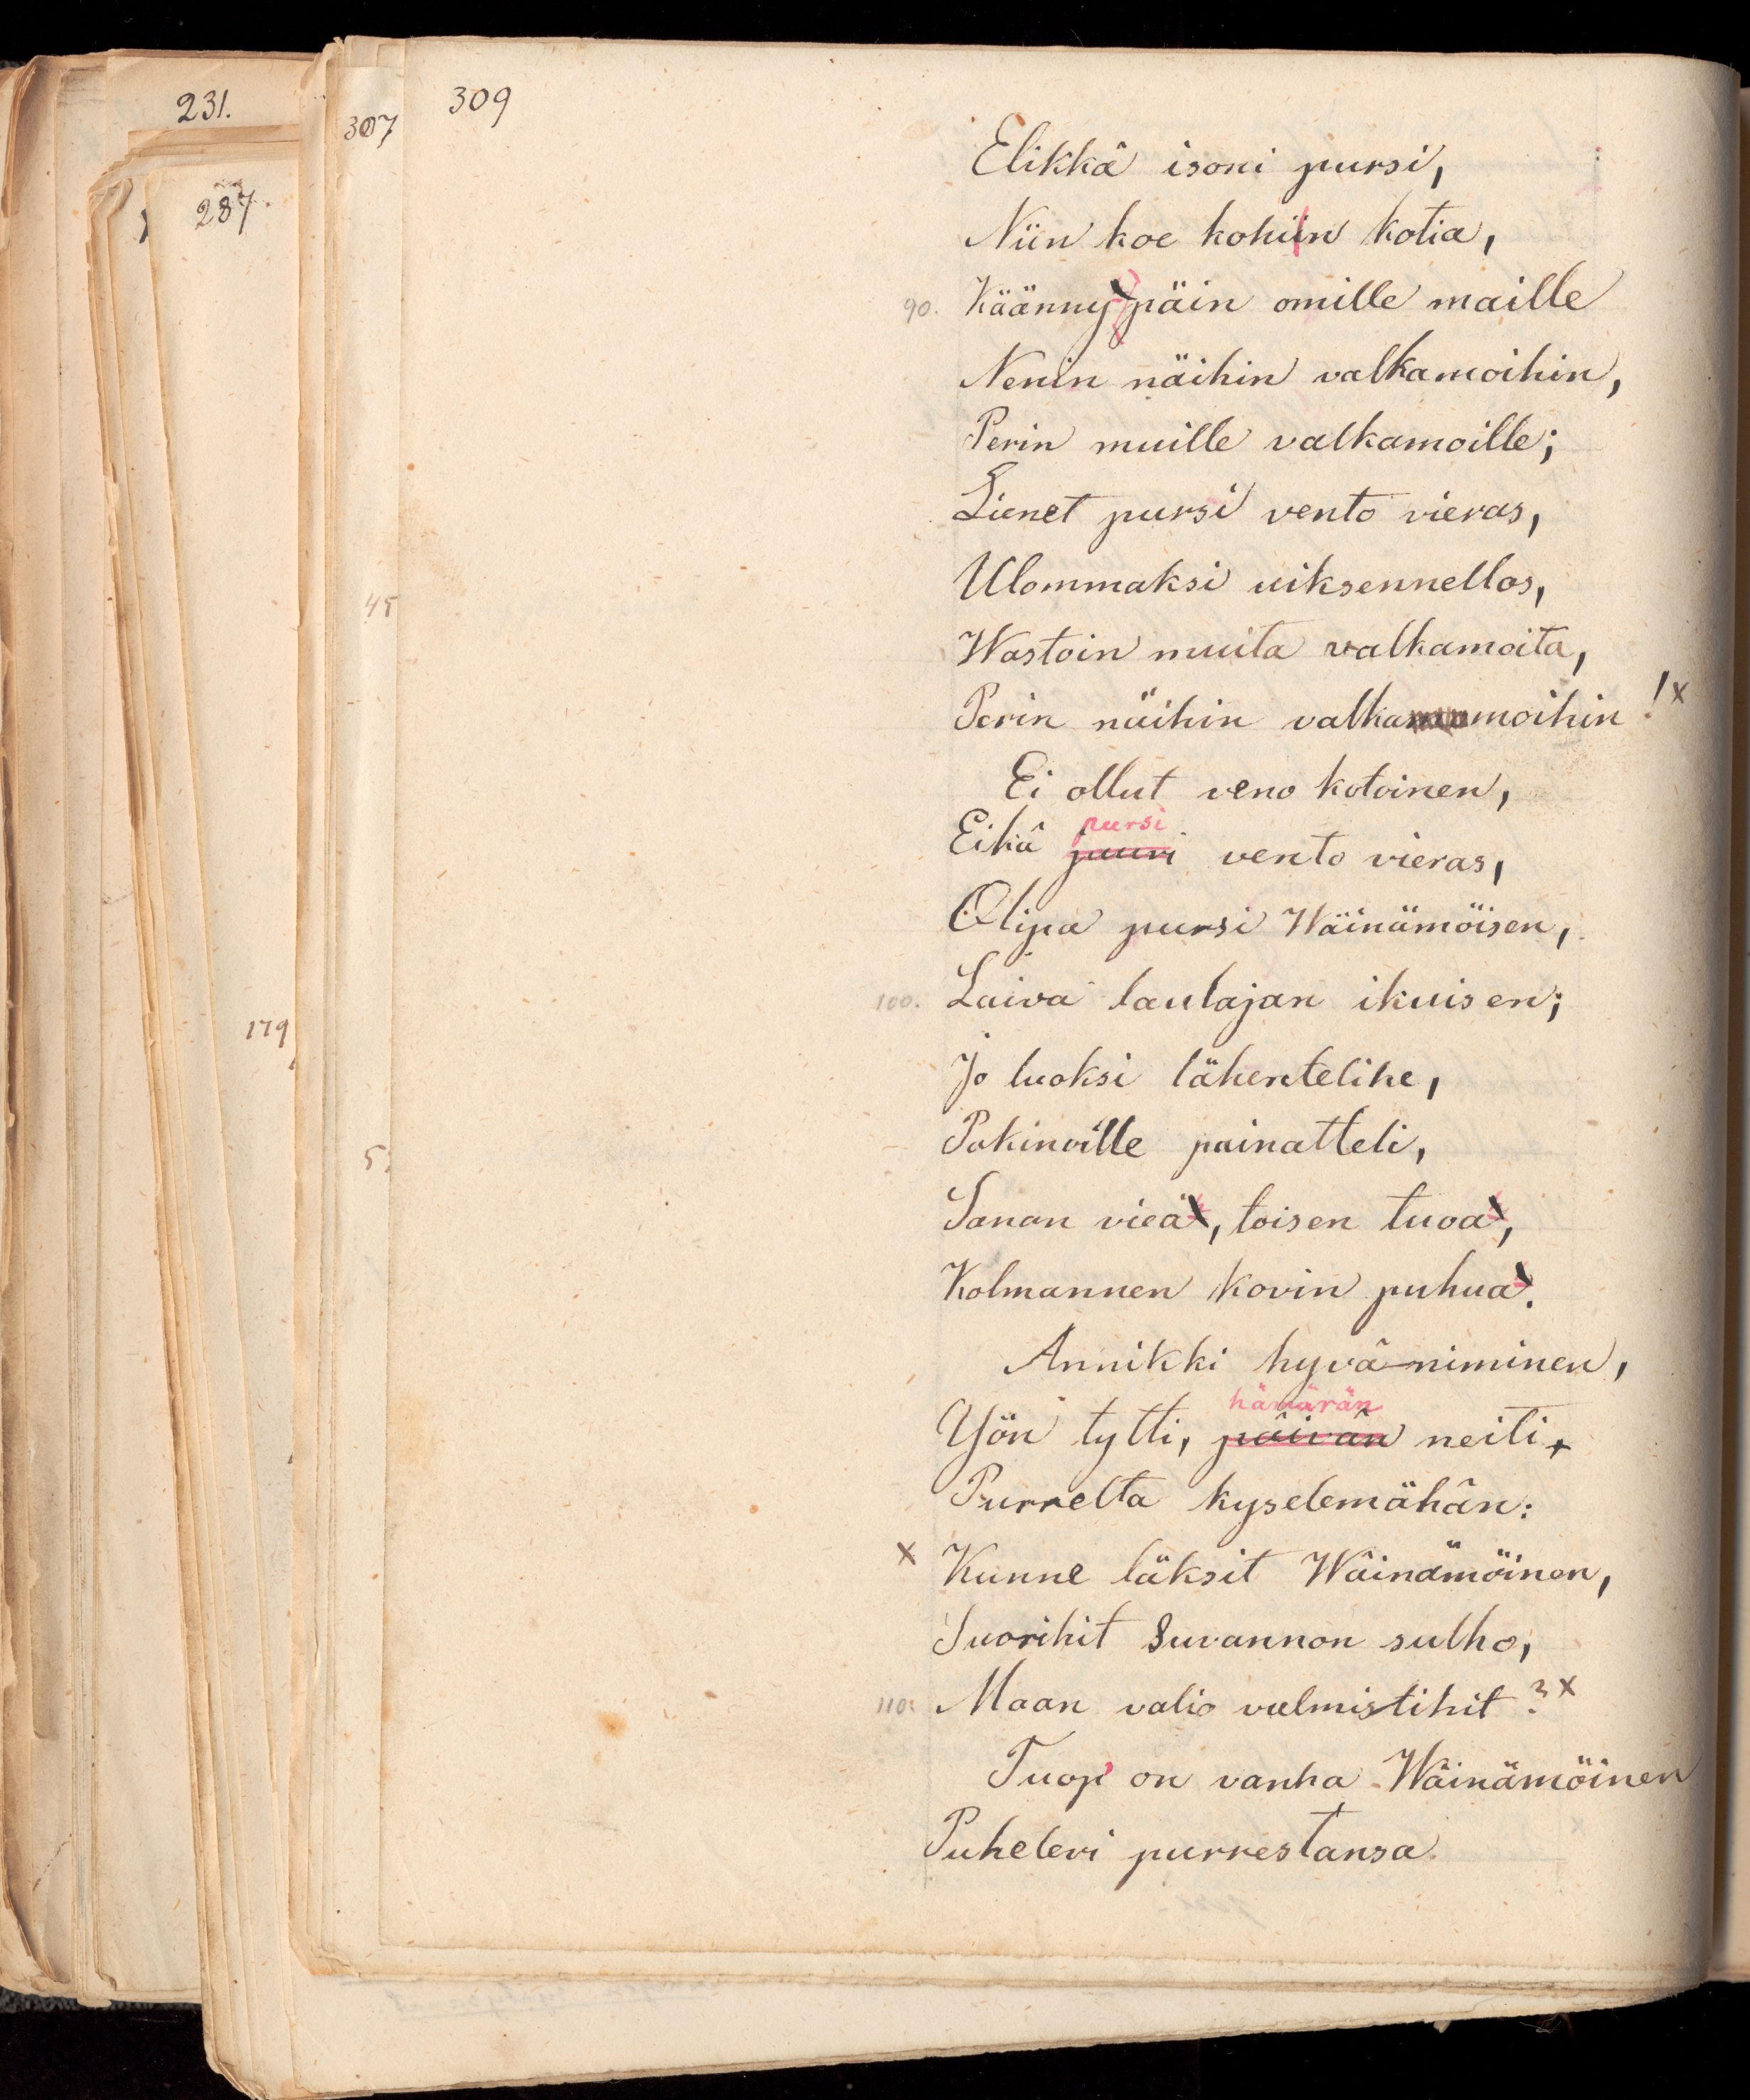 231.
287.
179
307
45
5.
309
Elikkä isoni pursi,
Niin koe kohin kotia,
90. Käänny päin omille maille
Nenin näihin valkamoihin,
Perin muille valkamoille;
Lienet pursi vento vieras,
Ulommaksi uiksennellos,
Wastoin muita valkamoita,
Perin näihin valkamoihin! x
Ei ollut veno kotoinen,
pursi
Eikä juuri vento vieras,
Olipa pursi Wäinämöisen,
100. Laiva laulajan ikuisen;
Jo luoksi lähentelihe,
Pakinoille painatteli,
Sanan vieä, toisen tuoa,
Kolmannen kovin puhua.
Annikki hyvä-niminen,
hämärän
Yön tytti, päivän neiti,
Purrelta kyselemähän:
x Kunne läksit Wäinämöinen,
Suorihit Suvannon sulho,
110: Maan valio valmistihit? x
Tuop' on vanha Wäinämöinen
Puhelevi purrestansa